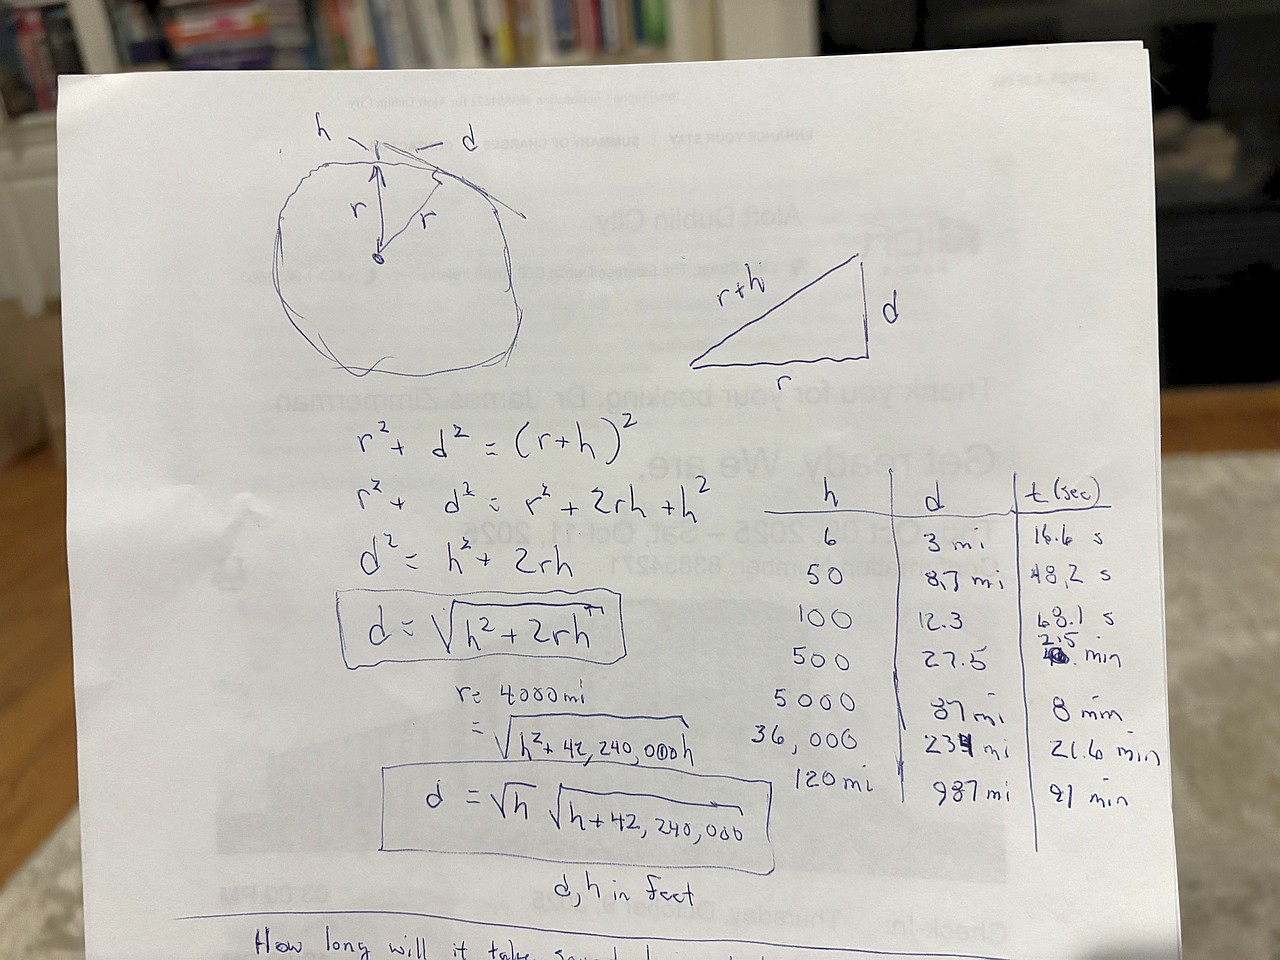 h
d
r
r
r+h
d
r
r² + d² = (r+h)²
r² + d² = r² + 2rh + h²
d² = h² + 2rh
d = √h² + 2rh
r = 4000 mi
= √h² + 42,240,000h
d = √h √h + 42,240,000
d, h in feet
h d t (sec)
6 3 mi 16.6 s
50 8.7 mi 48.2 s
100 12.3 68.1 s
500 27.5 2.5 min
5000 87 mi 8 min
36,000 234 mi 21.6 min
120 mi 987 mi 91 min
How long will it take